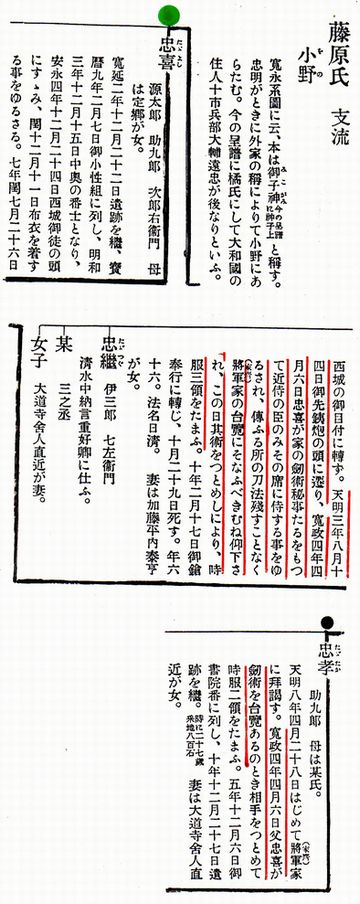 藤原氏 支流
小野
をの
寛永系圖に云、本は御子神
みこがみ
今の呈譜
に神子上
と稱す。
忠明がときに外家の稱によりて小野にあ
らたむ。今の呈譜に橘氏にして大和國の
住人十市兵部大輔遠忠が後なりといふ。
忠喜
たゞよし
源太郎 助九郎 次郎右衞門 母
は定鄕が女。
寛延二年十二月二十二日遺跡を繼、寳
暦九年二月七日御小性組に列し、明和
三年十二月十五日中奧の番士となり、
安永四年十二月二十四日西城御徒の頭
にすゝみ、閏十二月十一日布衣を着す
る事をゆるさる。七年閏七月二十六日
西城の御目付に轉ず。天明三年八月十
四日御先鐵炮の頭に遷り、寛政四年四
月六日忠喜が家の劔術秘事たるをもつ
て近侍の臣のみその席に侍する事をゆ
るされ、傳ふる所の刀法殘すことなく
(家齊)
將軍家の台覽にそなふべきむね仰下さ
れ、この日其術をつとめしにより、時
服三領をたまふ。十年二月十七日御鎗
奉行に轉じ、十月二十九日死す。年六
十六。法名日清。 妻は加藤平內泰亨
が女。
忠繼
たゞつぐ
伊三郎 七左衞門
清水中納言重好卿に仕ふ。
某
三之丞
女子
大道寺舍人直近が妻。
忠孝
たゞたか
助九郎 母は某氏。
天明八年四月二十八日はじめて
(家齊)
將軍家
に拜謁す。寛政四年四月六日父忠喜が
劔術を台覽あるのとき相手をつとめて
時服二領をたまふ。五年十二月六日御
書院番に列し、十年十二月二十七日遺
跡を繼。
時に二十七歲
采地八百石
妻は大道寺舍人直
近が女。